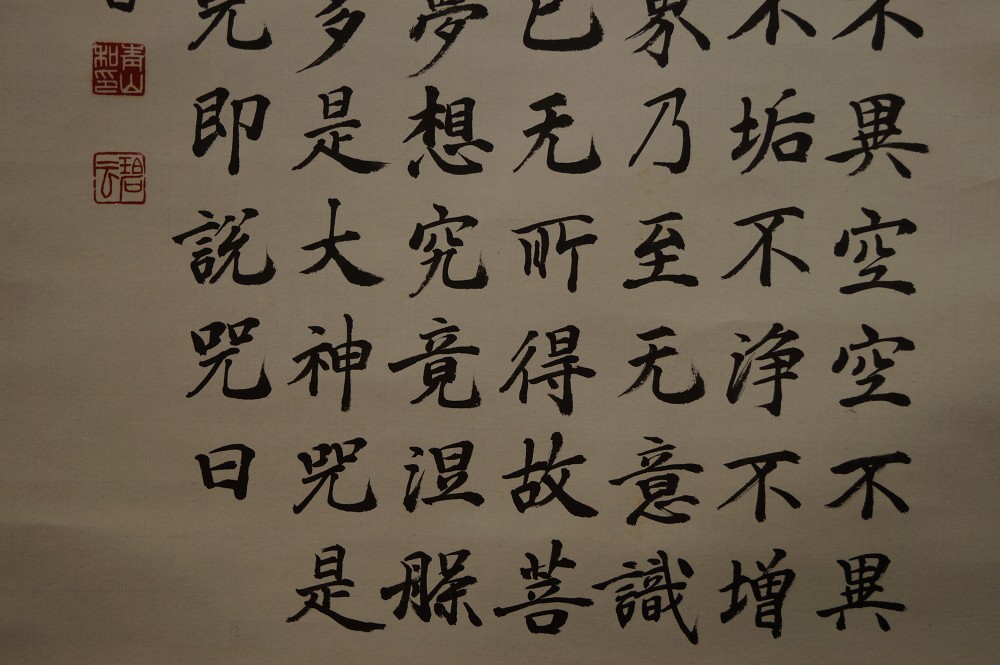 不異空空不異
不垢不浄不增
界乃至无意識
已无所得故菩
夢想究竟涅槃
多是大神咒是
咒即說咒曰
青山和印
碧云